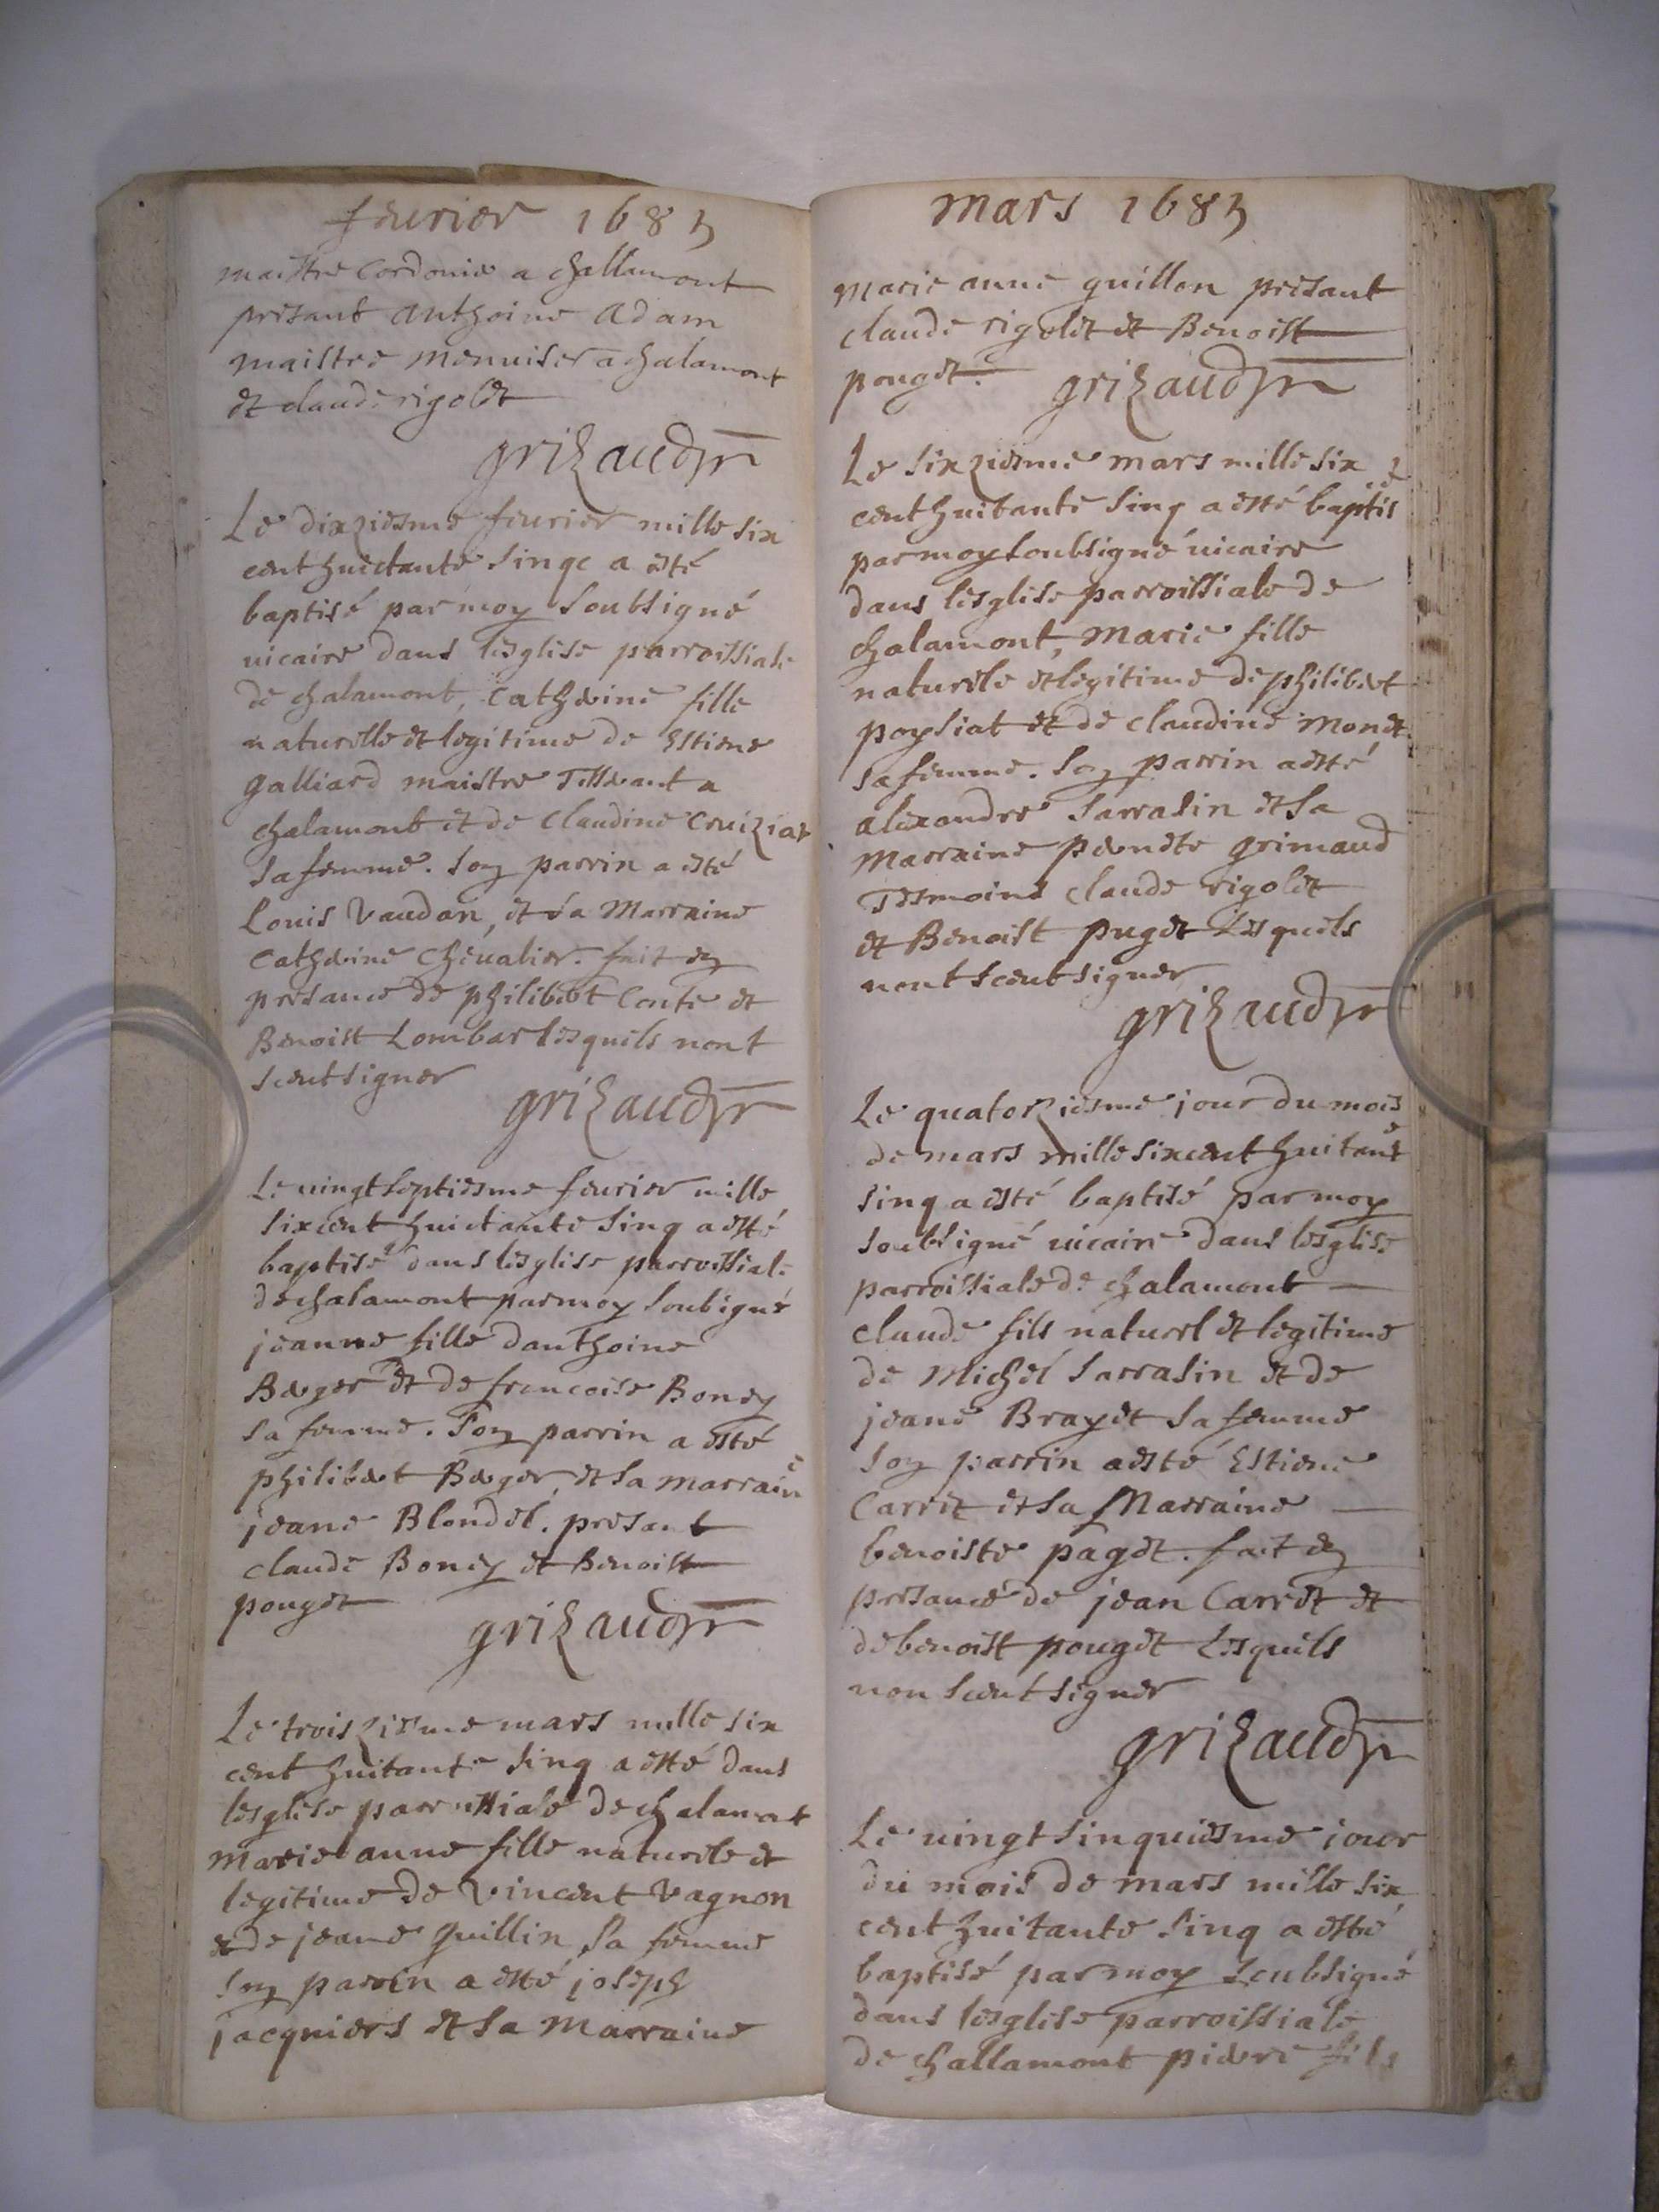 feurier 1685
maistre Cordonie a challamont
presant anthoine adam
maistre menuiser a chalamont
et claude rigolet
grizaud
Le dixziesme feurier mille six
cent huictante sinqc a esté
baptisé par moy soubsigné
uicaire dans lesglise parroissiale
de chalamont, catherine fille
naturelle et legitime de Estiene
galliard maistre Tisserant a
chalamont et de claudine Cruiziat
sa femme. Soy parrin a esté
Louis Vaudan, et sa Marraine
catherine cheualier. fait ey
presance de philibert Conte et
Benoist Lombar lesquils nont
sceut signer
grizaud
Le uingt septiesme feurier mille
six cent huictante sinq a esté
baptisé dans lesglise parroissiale
de chalamont par moy soubigné
jeanne fille danthoine
Berger et de francoise Boney
sa femme. Soy parrin a esté
philibert Berger, et sa marraine
jeane Blondel. presant
claude Boney et Benoist
pouget
grizaud
Le troisziesme mars mille six
cent huitante sinq a esté dans
lesglise parroissiale de chalamont
Marie anne fille naturele et
legitime de Vincent Vagnon
et de jeane guillin sa femme
soy parrin a esté joseph
jacquiers et sa marraine
mars 1685
marie anne guillon presant
claude rigolet et Benoist
pouget. grizaud
Le sixziesme mars mille six
cent huitante sinq a esté baptis
par moy soubsigné uicaire
dans lesglise parroissiale de
chalamont, marie fille
naturele et legitime de philibert
poysiat et de claudine monet
sa femme. Soy parrin a esté
alexandre sarrasin et sa
marraine pernete grimaud
Tesmoins claude rigolet
et Benoist puget Lesquels
nont sceut signer
grizaud
Le quatorziesme jour du mois
de mars mille six cent huitante
sinq a esté baptisé par moy
soubsigné uicaire dans lesglise
parroissiale de chalamont
claude fils naturel et legitime
de Michel sarrasin et de
jeane Brayet sa femme
soy parrin a esté Estiene
Carret et sa Marraine
benoiste paget. fait ey
presance de jean Carret et
de benoist pouget Lesquils
non sceut signer
grizaud
Le uingt sinquiesme jour
du mois de mars mille six
cent huitante sinq a esté
baptisé par moy soubsigné
dans lesglise parroissiale
de challamont pierre fils